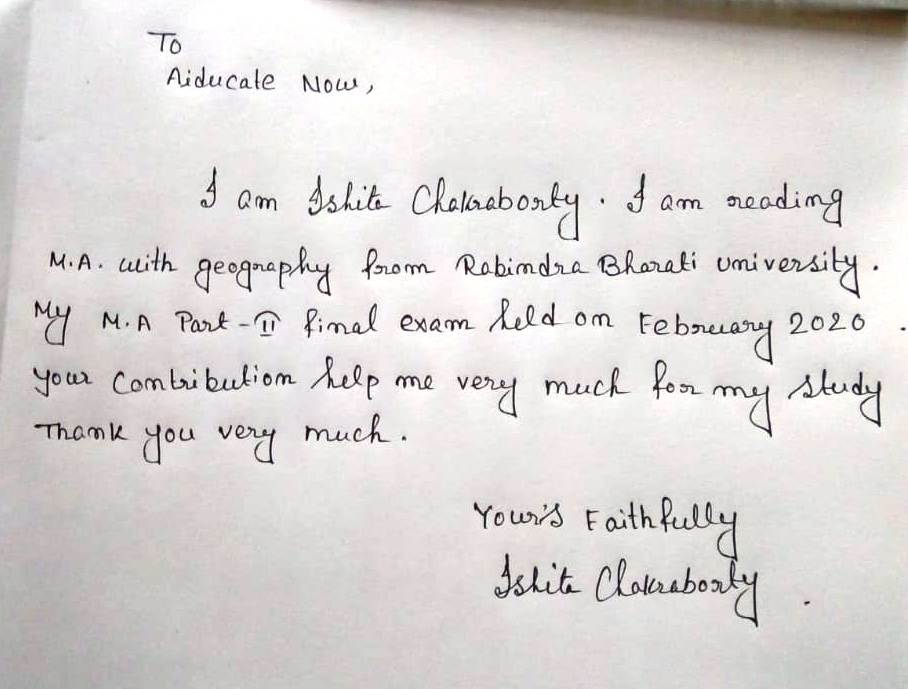 To
Aiducate Now,
I am Ishita Chakraborty. I am reading
M.A. with geography from Rabindra Bharati university.
My M.A Part-II final exam held on February 2020.
your contribution help me very much for my study
Thank you very much.
Your's Faithfully
Ishita Chakraborty.